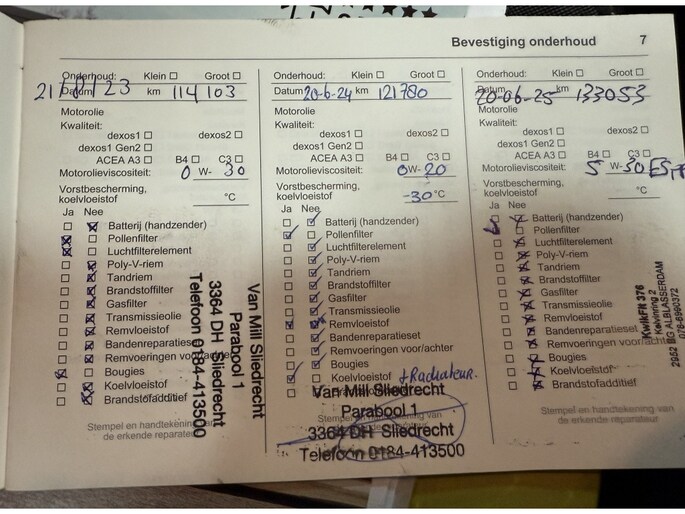 Bevestiging onderhoud 7
Onderhoud: Klein Groot
Datum 21/8/23 km 114 103
Motorolie
Kwaliteit:
dexos1 dexos2
dexos1 Gen2
ACEA A3 B4 C3
Motorolieviscositeit: 0 W- 30
Vorstbescherming,
koelvloeistof °C
Ja Nee
Batterij (handzender)
Pollenfilter
Luchtfilterelement
Poly-V-riem
Tandriem
Brandstoffilter
Gasfilter
Transmissieolie
Remvloeistof
Bandenreparatieset
Remvoeringen voor/achter
Bougies
Koelvloeistof
Brandstofadditief
Stempel en handtekening van
de erkende reparateur
Van Mill Sliedrecht
Parabool 1
3364 DH Sliedrecht
Telefoon 0184-413500
Onderhoud: Klein Groot
Datum 20-6-24 km 121780
Motorolie
Kwaliteit:
dexos1 dexos2
dexos1 Gen2
ACEA A3 B4 C3
Motorolieviscositeit: 0W- 20
Vorstbescherming,
koelvloeistof -30 °C
Ja Nee
Batterij (handzender)
Pollenfilter
Luchtfilterelement
Poly-V-riem
Tandriem
Brandstoffilter
Gasfilter
Transmissieolie
Remvloeistof
Bandenreparatieset
Remvoeringen voor/achter
Bougies
Koelvloeistof + Radiateur.
Van Mill Sliedrecht
Parabool 1
3364 DH Sliedrecht
Telefoon 0184-413500
Onderhoud: Klein Groot
Datum 20-06-25 km 133053
Motorolie
Kwaliteit:
dexos1 dexos2
dexos1 Gen2
ACEA A3 B4 C3
Motorolieviscositeit: 5 W-30
Vorstbescherming,
koelvloeistof °C
Ja Nee
Batterij (handzender)
Pollenfilter
Luchtfilterelement
Poly-V-riem
Tandriem
Brandstoffilter
Gasfilter
Transmissieolie
Remvloeistof
Bandenreparatieset
Remvoeringen voor/achter
Bougies
Koelvloeistof
Brandstofadditief
Stempel en handtekening van
de erkende reparateur
KwikFit 376
Kelvinring 2
2952 BG ALBLASSERDAM
078-6990372